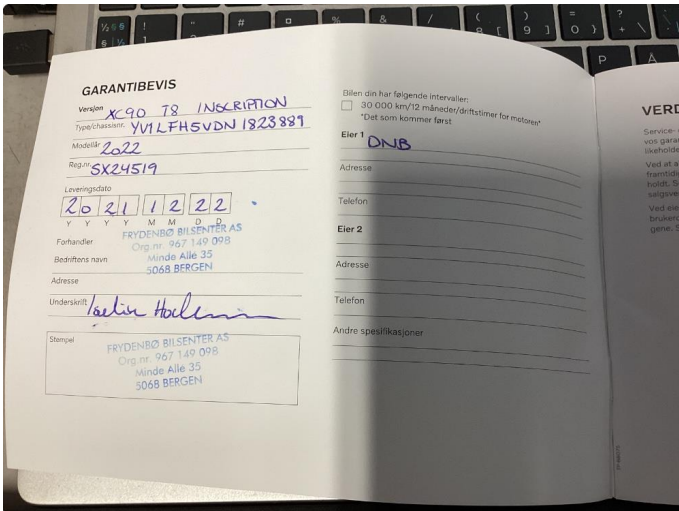 GARANTIBEVIS
Versjon XC90 T8 INSCRIPTION
Type/chassisnr. YV1LFH5VDN1823889
Modellår 2022
Reg.nr. SX24519
Leveringsdato
2 0 2 1 1 2 2 2
Y Y Y Y M M D D
Forhandler
FRYDENBØ BILSENTER AS
Org.nr. 967 149 098
Bedriftens navn
Minde Alle 35
5068 BERGEN
Adresse
Underskrift
Stempel
FRYDENBØ BILSENTER AS
Org.nr. 967 149 098
Minde Alle 35
5068 BERGEN
Bilen din har følgende intervaller:
30 000 km/12 måneder/driftstimer for motoren*
*Det som kommer først
Eier 1 DNB
Adresse
Telefon
Eier 2
Adresse
Telefon
Andre spesifikasjoner
VERD
Service-
vos garan
likeholde
Ved at a
framtidi
holdt. S
salgsver
Ved eie
bruker
gene. S